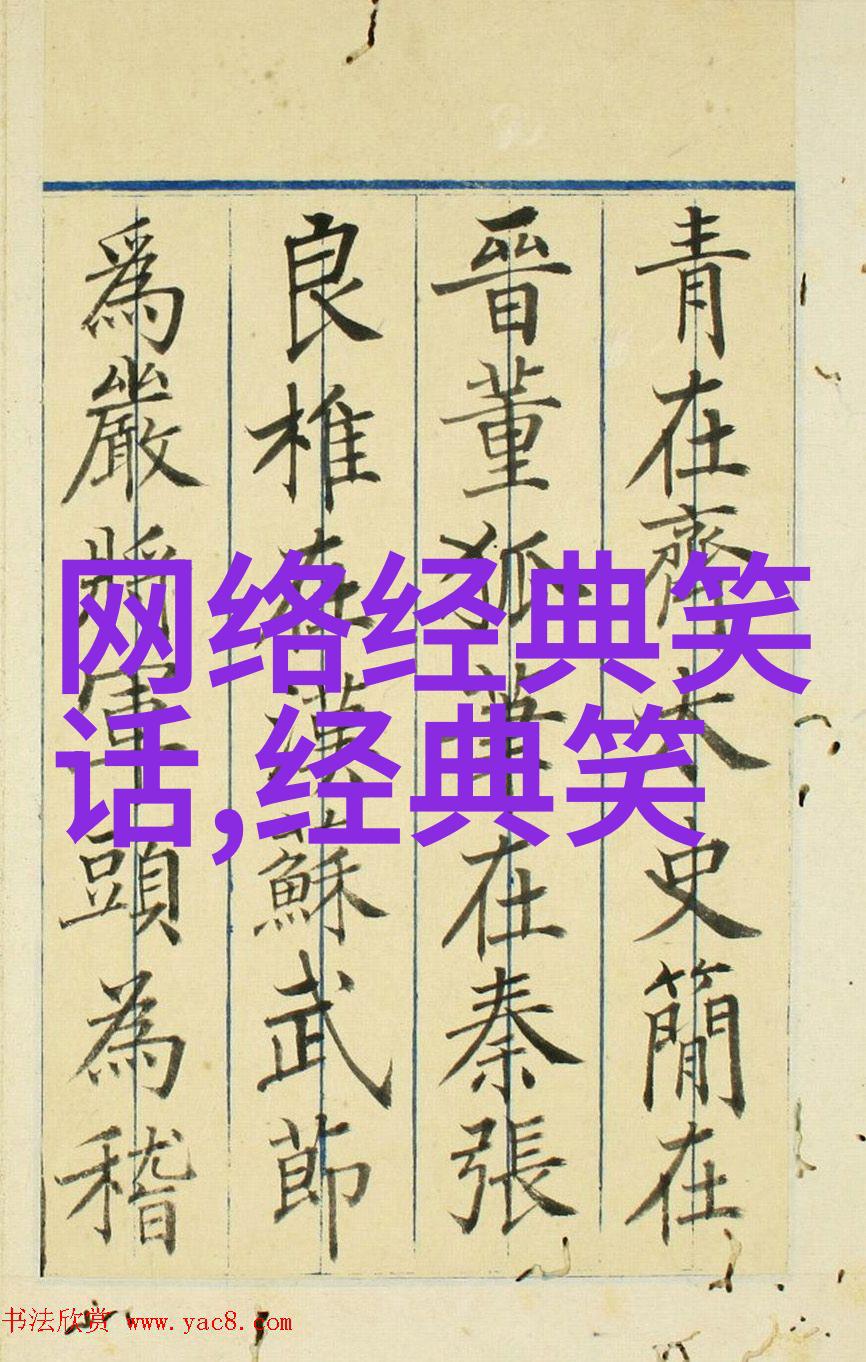 青在齊太史簡在
晉董狐筆在秦張
良椎在漢蘇武節
爲嚴將軍頭為稽
网络经典笑
话,经典笑
书法欣赏 www.yac8.com